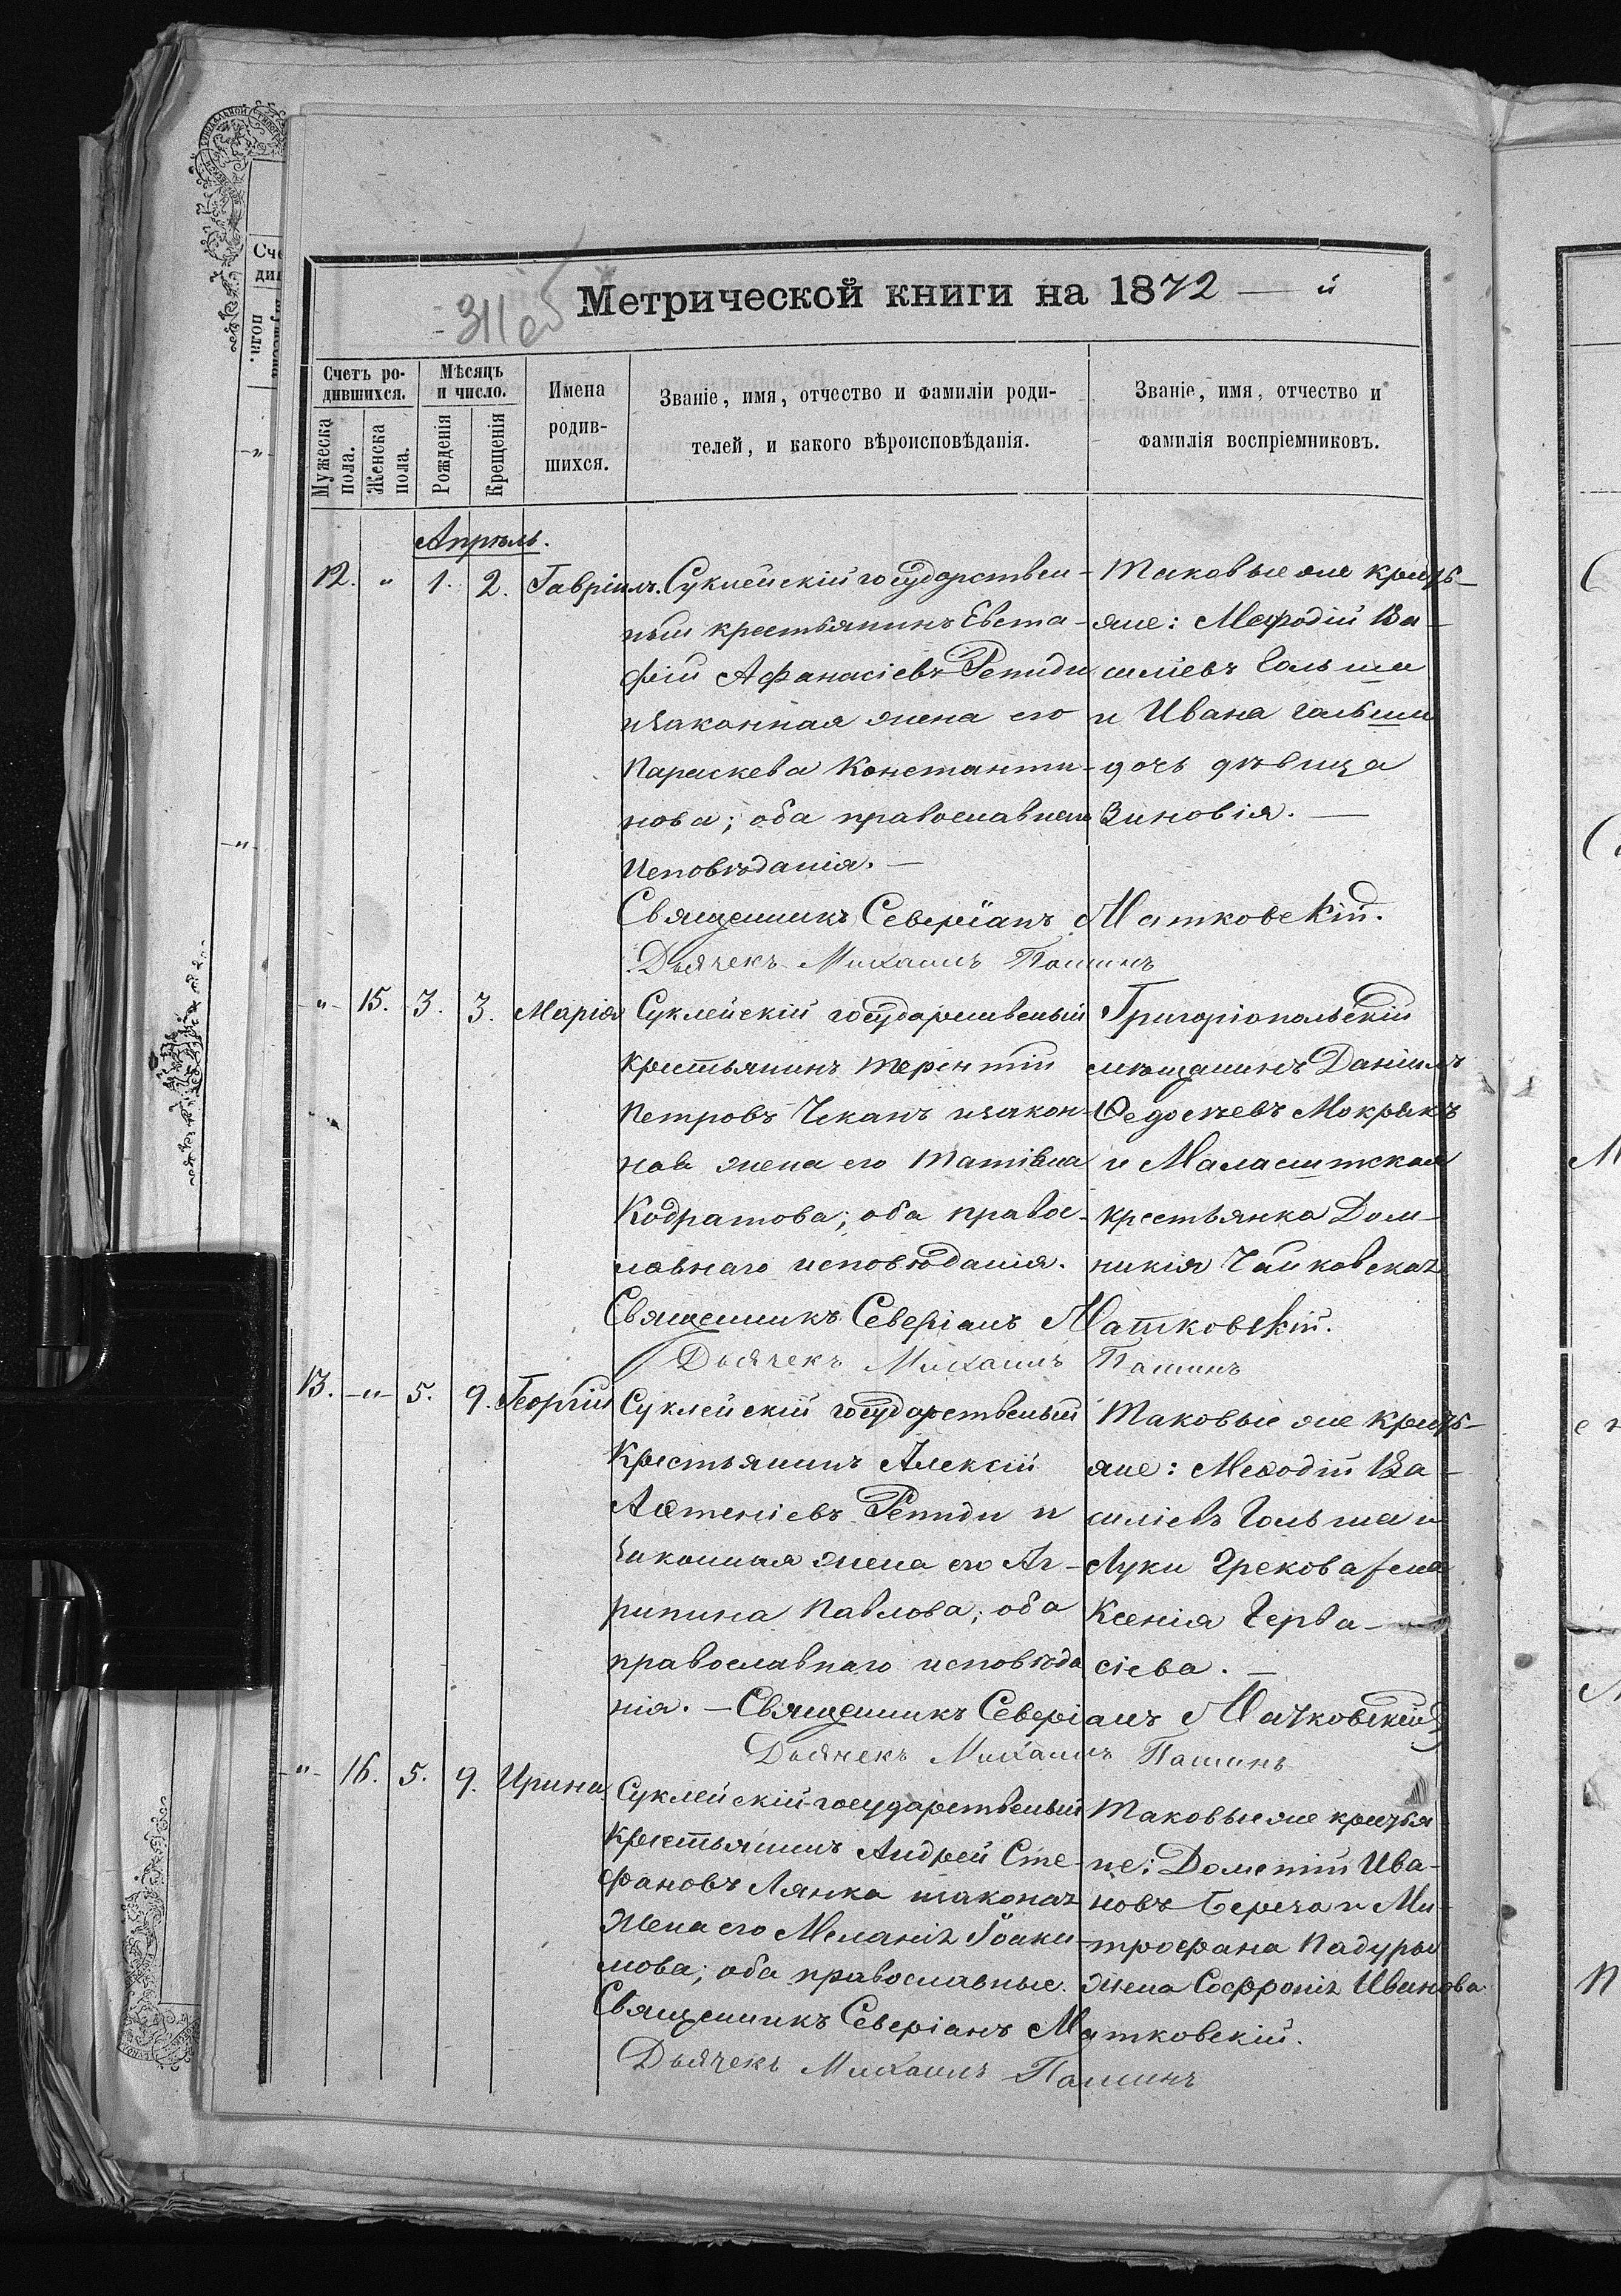 311об
Метрической книги на 1872 — й
Счетъ ро-
дившихся.
Мѣсяцъ
и число.
Имена
родив-
шихся.
Званіе, имя, отчество и фамиліи роди-
телей, и какого вѣроисповѣданія.
Званіе, имя, отчество и
фамилія воспріемниковъ.
Мужеска
пола.
Женска
пола.
Рожденія
Крещенія
Апрѣль.
12. " 1. 2. Гавріилъ.
Суклейскій государствен-
ный крестьянинъ Евста-
фій Афанасіевъ Репиди
изаконная жена его
Параскева Константи-
нова; оба православнаго
исповѣданія. —
Таковые же крестьь-
яне: Мефодій Ва-
силіевъ Гольша
и Ивана Гольши
дочь дѣвица
Зиновія. —
Священникъ Северіанъ Матковскій.
Дьячекъ Михаилъ Пашинъ
" 15. 3. 3. Марія
Суклейскій государственый
крестьянинъ Терентій
Петровъ Чеканъ изакон-
ная жена его Татіана
Кодратова; оба правос-
лавнаго исповѣданія.
Григоріопольскій
мѣщанинъ Даніилъ
Федосѣевъ Мокрякъ
и Малаештская
крестьянка Дом-
никія Чайковская
Священникъ Северіанъ Матковскій.
Дьячекъ Михаилъ Пашинъ
13. " 5. 9. Георгій
Суклейскій государственый
Крестьянинъ Алексій
Артеміевъ Репиди и
законная жена его Аг-
рипина Павлова; оба
православнаго исповѣда
нія. — Священникъ Северіанъ Матковскій
Таковые же
яне: Меѳодій Ва-
силіевъ Гольша и
Луки Грекова жена
Ксенія Герва-
сіева. —
Дьячекъ Михаилъ Пашинъ
" 16. 5. 9. Ирина
Суклейскій государственый
Крестьянинъ Андрей Сте-
фановъ Лянка
Жена его Меланія Іоаки-
мова; оба православные.
Таковые же
не: Дометій Ива-
новъ и Ми-
трофана Падуры
жена Софронія Иванова
Священникъ Северіанъ Матковскій.
Дьячекъ Михаилъ Пашинъ